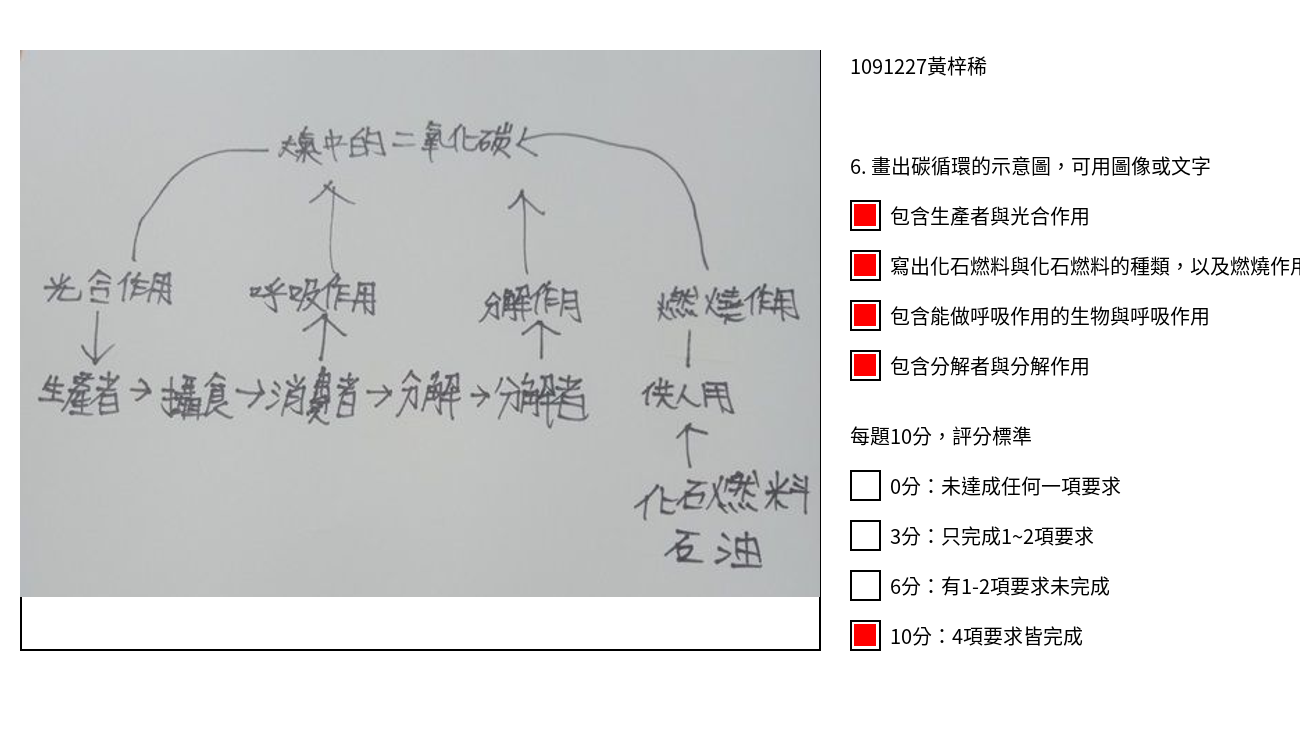 大氣中的二氧化碳
光合作用 呼吸作用 分解作用 燃燒作用
生產者→攝食→消費者→分解→分解者 供人用
化石燃料
石油
1091227黃梓稀
6. 畫出碳循環的示意圖，可用圖像或文字
包含生產者與光合作用
寫出化石燃料與化石燃料的種類，以及燃燒作用
包含能做呼吸作用的生物與呼吸作用
包含分解者與分解作用
每題10分，評分標準
0分：未達成任何一項要求
3分：只完成1~2項要求
6分：有1-2項要求未完成
10分：4項要求皆完成